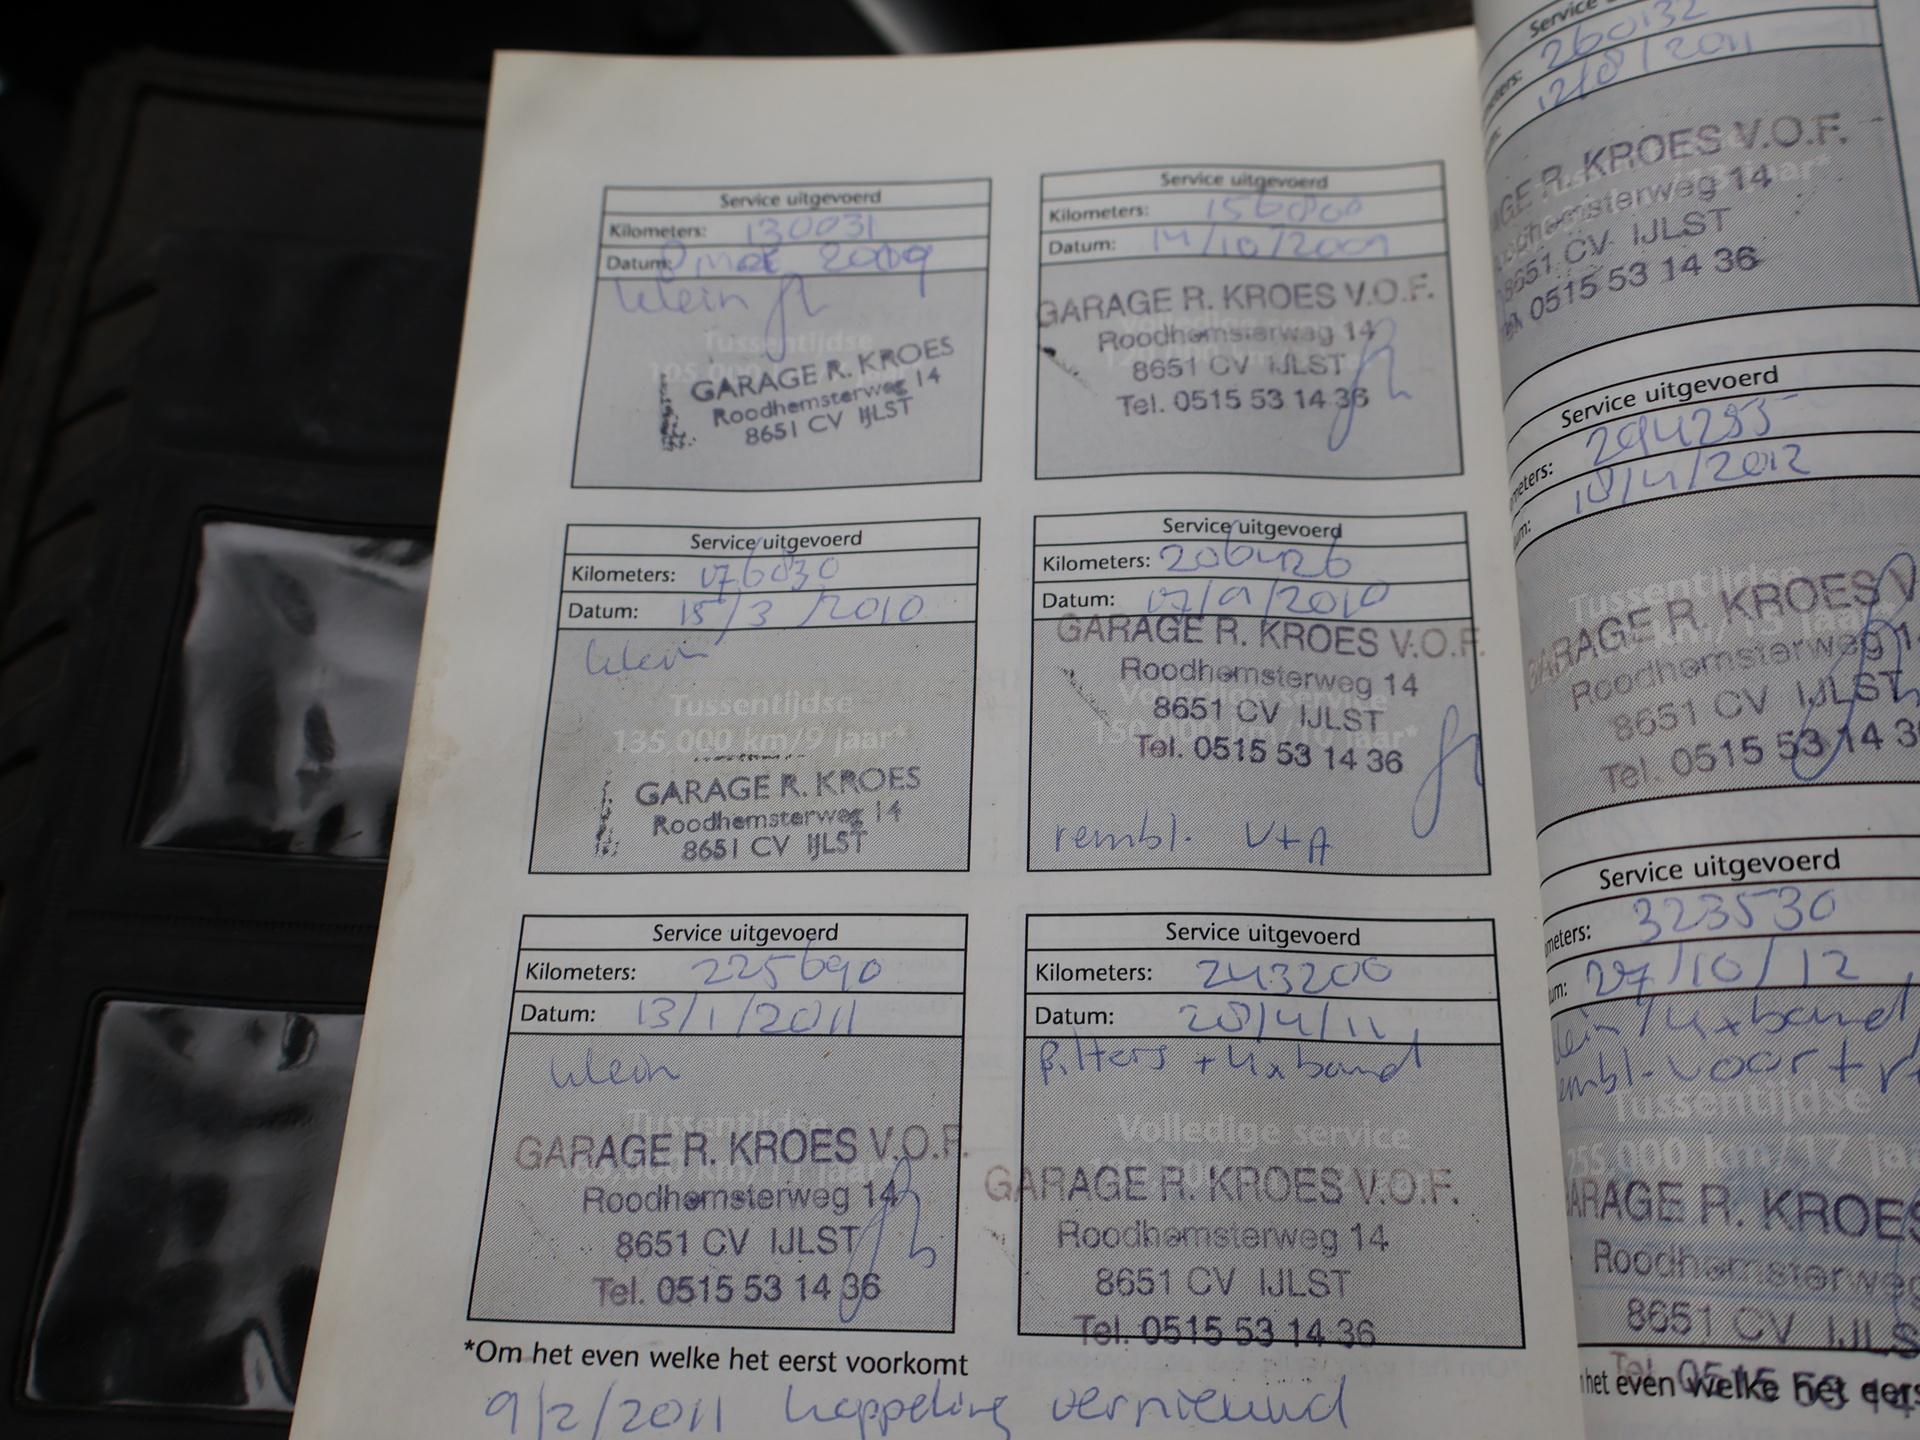 Service uitgevoerd
Kilometers: 130031
Datum: 8 mei 2009
klein
Tussentijdse
105.000
GARAGE R. KROES
Roodhemsterweg 14
8651 CV IJLST
Service uitgevoerd
Kilometers: 156000
Datum: 14/10/2009
GARAGE R. KROES V.O.F.
Roodhemsterweg 14
8651 CV IJLST
Tel. 0515 53 14 36
Service uitgevoerd
Kilometers: 176030
Datum: 15/3/2010
klein
Tussentijdse
135.000 km/9 jaar*
GARAGE R. KROES
Roodhemsterweg 14
8651 CV IJLST
Service uitgevoerd
Kilometers: 206426
Datum: 17/9/2010
GARAGE R. KROES V.O.F.
Roodhemsterweg 14
Volledige service
8651 CV IJLST
150.000 km/10 jaar*
Tel. 0515 53 14 36
rembl. V+A
Service uitgevoerd
Kilometers: 225690
Datum: 13/1/2011
klein
Tussentijdse
GARAGE R. KROES V.O.F.
Roodhemsterweg 14
8651 CV IJLST
Tel. 0515 53 14 36
Service uitgevoerd
Kilometers: 243200
Datum: 28/4/11
filters + 4x band
Volledige service
GARAGE R. KROES V.O.F.
Roodhemsterweg 14
8651 CV IJLST
Tel. 0515 53 14 36
*Om het even welke het eerst voorkomt
9/2/2011 koppeling vernieuwd
Service
260132
12/8/2011
GARAGE R. KROES V.O.F.
Roodhemsterweg 14
8651 CV IJLST
0515 53 14 36
Service uitgevoerd
meters: 294255
um: 18/4/2012
Tussentijdse
GARAGE R. KROES V
Roodhemsterweg 14
8651 CV IJLST
Tel. 0515 53 14 3
Service uitgevoerd
meters: 323530
um: 27/10/12
lein / 4x band
embl. voor +
Tussentijdse
255.000 km/17 ja
ARAGE R. KROES
Roodhemsterweg
8651 CV IJLS
Tel. 0515 53 14
het even welke het eers